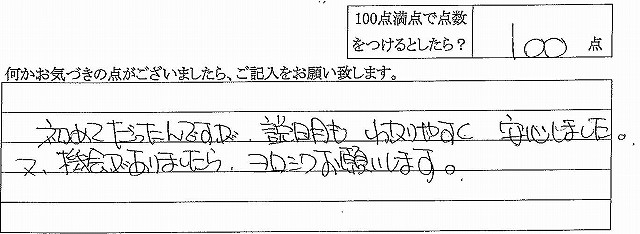 100点満点で点数
をつけるとしたら？
100 点
何かお気づきの点がございましたら、ご記入をお願い致します。
初めてだったんですが、説明も わかりやすく 安心しました。
又、機会がありましたら、ヨロシクお願いします。